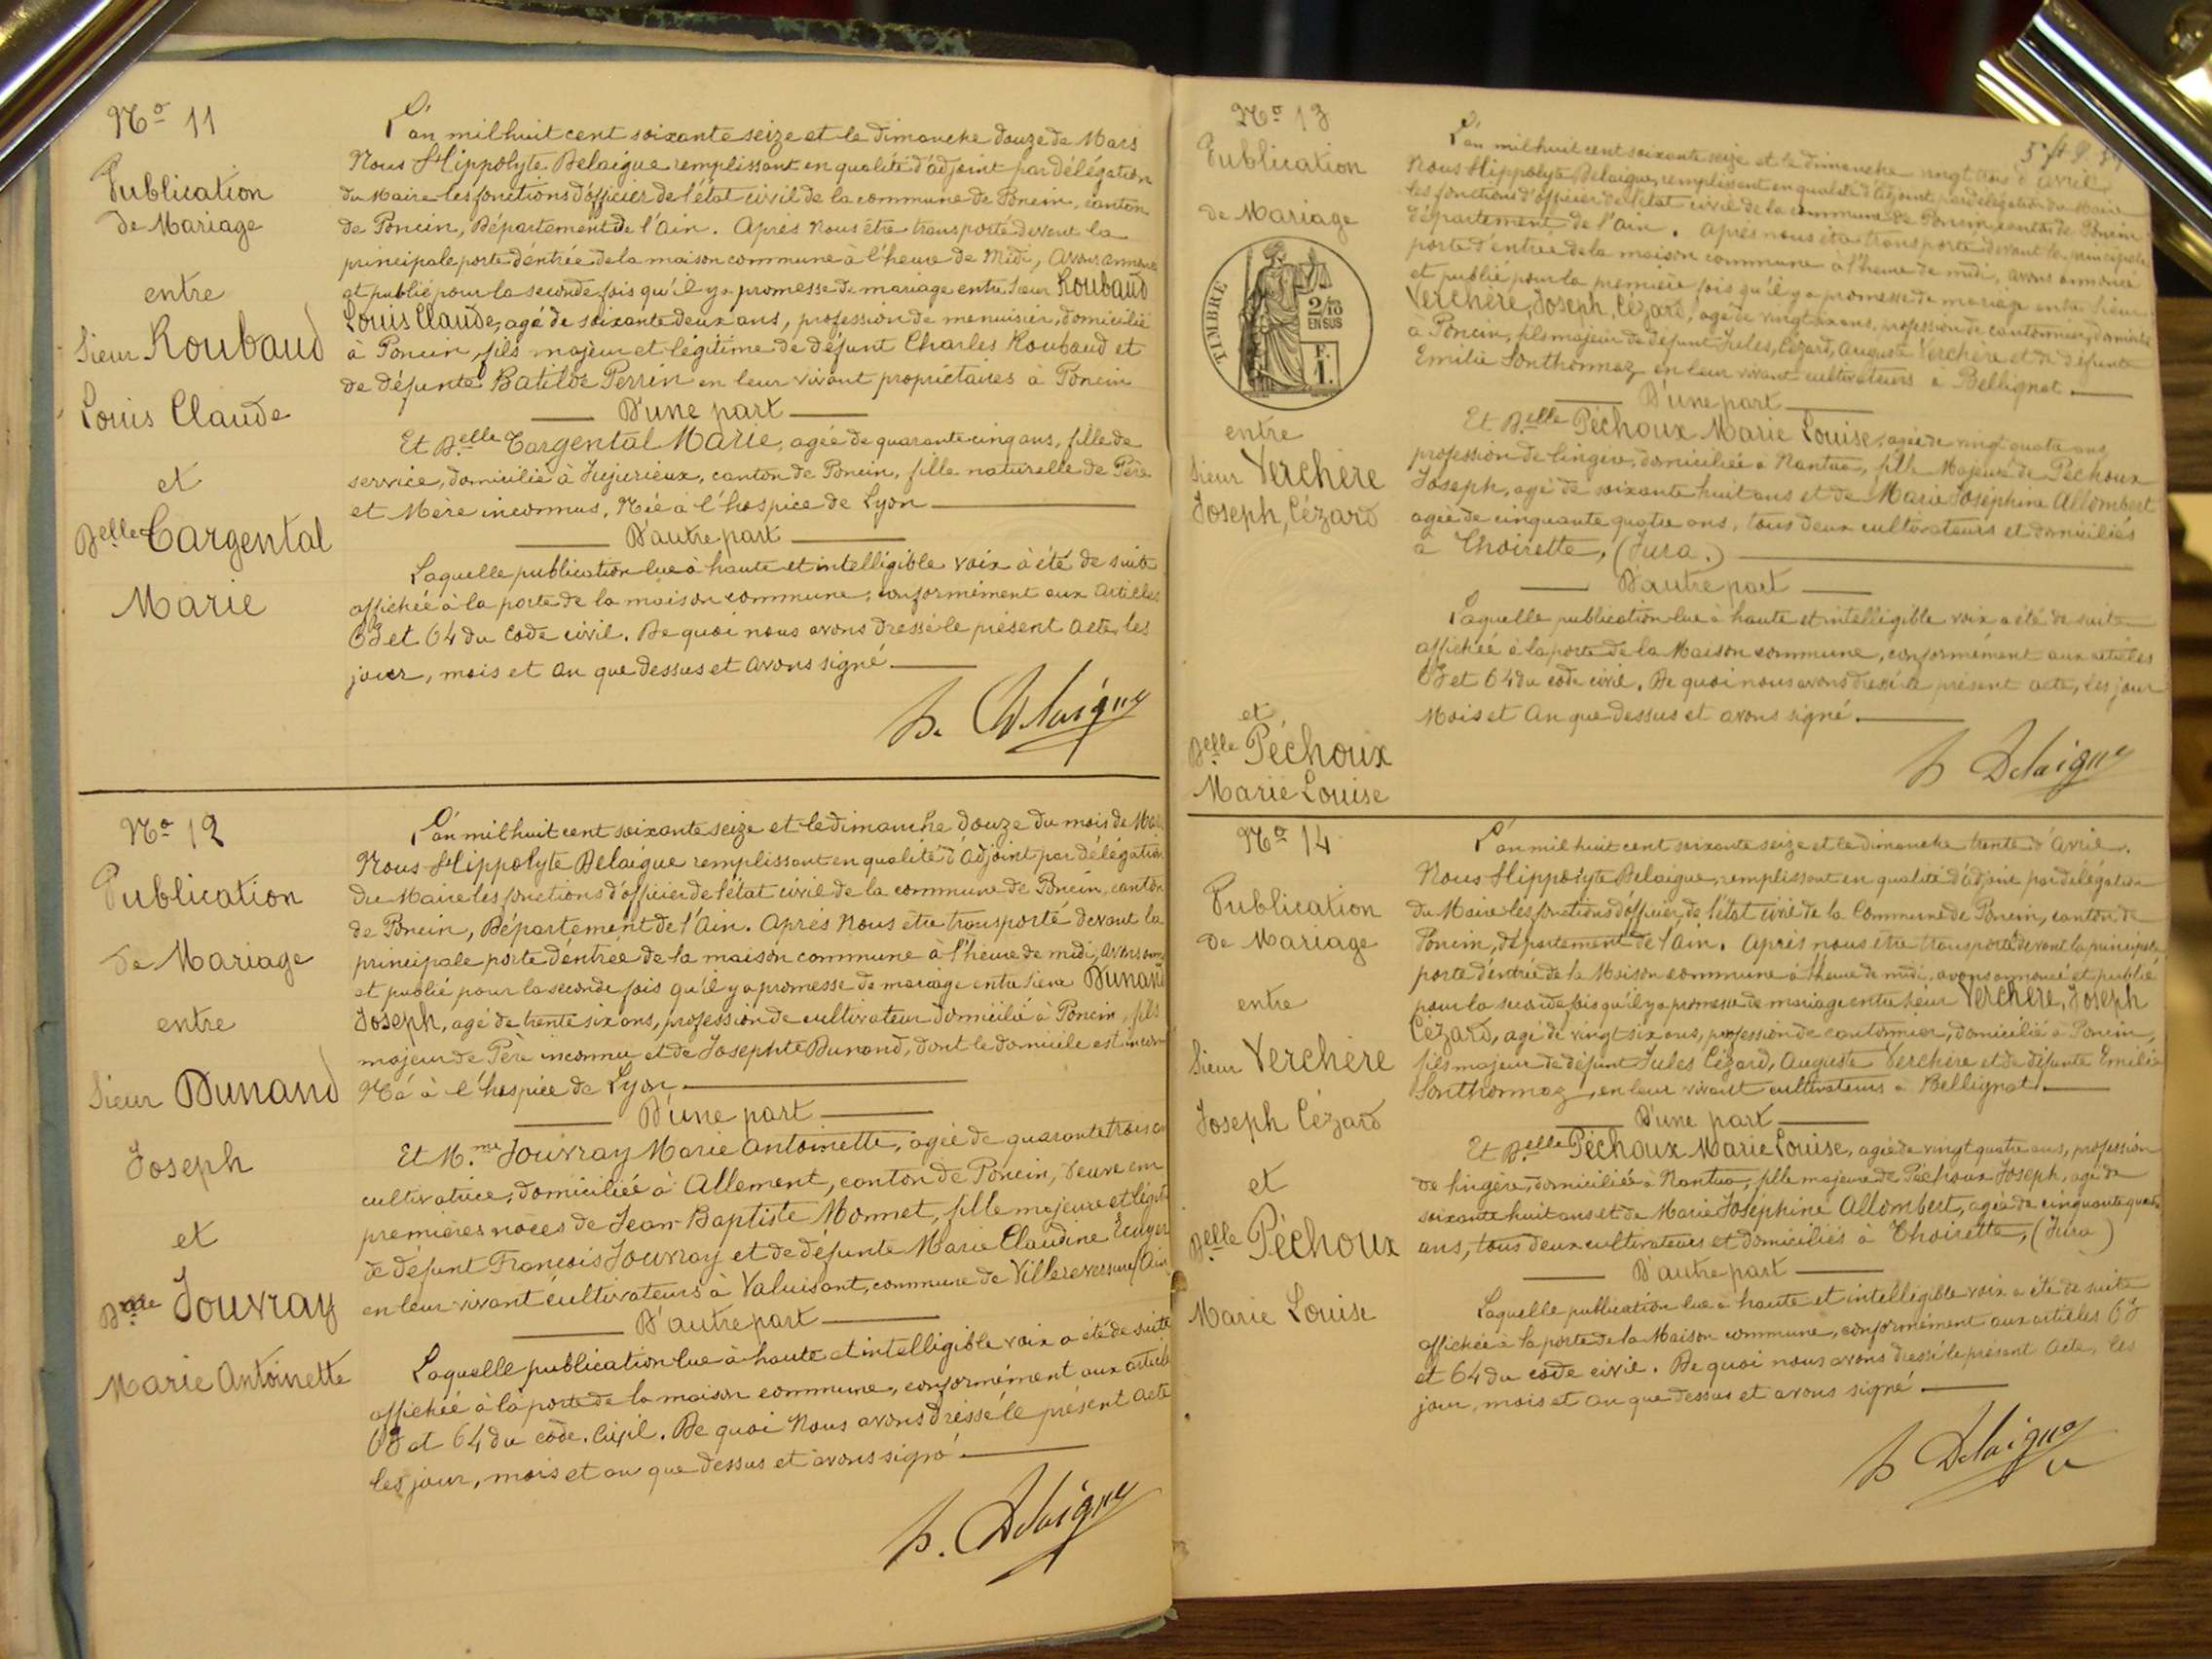 No 11
Publication
de Mariage
entre
Sieur Roubaud
Louis Claude
et
Delle Cargental
Marie
L'an mil huit cent soixante seize et le dimanche douze de Mars
Nous Hippolyte Delaigue remplissant en qualité d'adjoint par délégation
du Maire les fonctions d'officier de l'état civil de la commune de Poncin, canton
de Poncin, Département de l'Ain. Après nous être transporté devant la
principale porte d'entrée de la maison commune à l'heure de midi, avons annoncé
et publié pour la seconde fois qu'il y a promesse de mariage entre sieur Roubaud
Louis Claude, agé de soixante deux ans, profession de menuisier, domicilié
à Poncin, fils majeur et légitime de défunt Charles Roubaud et
de défunte Batilde Perrin en leur vivant propriétaires à Poncin
D'une part
Et Delle Cargental Marie, agée de quarante cinq ans, fille de
service, domicilié à Jujurieux, canton de Poncin, fille naturelle de Père
et Mère inconnus, Née à l'hospice de Lyon
D'autre part
Laquelle publication lue à haute et intelligible voix à été de suite
affichée à la porte de la maison commune, conformément aux articles
63 et 64 du Code civil. De quoi nous avons dressé le présent acte, les
jour, mois et an que dessus et avons signé
h. Delaigue
No 12
Publication
de Mariage
entre
Sieur Dunand
Joseph
et
Dme Jouvray
Marie Antoinette
L'an mil huit cent soixante seize et le dimanche douze du mois de Mars
Nous Hippolyte Delaigue remplissant en qualité d'Adjoint par délégation
du Maire les fonctions d'officier de l'état civil de la commune de Poncin, canton
de Poncin, Département de l'Ain. Après Nous être transporté devant la
principale porte d'entrée de la maison commune à l'heure de midi, avons
et publié pour la seconde fois qu'il y a promesse de mariage entre sieur Dunand
Joseph, agé de trente six ans, profession de cultivateur domicilié à Poncin, fils
majeur de Père inconnu et de Josephte Dunand, dont le domicile est
Né à l'hospice de Lyon
D'une part
Et Mme Jouvray Marie Antoinette, agée de quarante trois
cultivatrice, domiciliée à Allement, canton de Poncin, veuve en
premières noces de Jean-Baptiste Monnet, fille majeure et
de défunt François Jouvray et de défunte Marie Claudine Ecuyer
en leur vivant cultivateurs à Valuisant, commune de Villereversure (Ain
D'autre part
Laquelle publication lue à haute et intelligible voix a été de suite
affichée à la porte de la maison commune, conformément aux articles
63 et 64 du code civil. De quoi Nous avons dressé le présent acte
les jour, mois et an que dessus et avons signé
h. Delaigue
No 13
Publication
de Mariage
TIMBRE
2/10
EN SUS
F.
1.
entre
Sieur Verchère
Joseph, Cézard
et
Delle Péchoux
Marie Louise
L'an mil huit cent soixante seize et le dimanche vingt trois d'avril
Nous Hippolyte Delaigue, remplissant en qualité d'adjoint par délégation du Maire
les fonctions d'officier de l'état civil de la commune de Poncin, canton de Poncin
département de l'Ain. Après nous être transporté devant la principale
porte d'entrée de la maison commune à l'heure de midi, avons annoncé
et publié pour la première fois qu'il y a promesse de mariage entre Sieur
Verchère, Joseph, Cézard, agé de vingt six ans, profession de cantonnier, domicilié
à Poncin, fils majeur de défunt Jules, Cézard, Auguste Verchère et de défunte
Emilie Sonthonnaz en leur vivant cultivateurs à Bellignat
D'une part
Et Delle Péchoux Marie Louise, agée de vingt quatre ans,
profession de lingère, domiciliée à Nantua, fille Majeure de Péchoux
Joseph, agé de soixante huit ans et de Marie Joséphine Allombert
agée de cinquante quatre ans, tous deux cultivateurs et domiciliés
à Thoirette, (Jura.)
D'autre part
Laquelle publication lue à haute et intelligible voix a été de suite
affichée à la porte de la Maison commune, conformément aux articles
63 et 64 du code civil. De quoi nous avons dressé le présent acte, les jour
Mois et an que dessus et avons signé.
h Delaigue
No 14
Publication
de Mariage
entre
Sieur Verchère
Joseph Cézard
et
Delle Péchoux
Marie Louise
L'an mil huit cent soixante seize et le dimanche trente d'avril.
Nous Hippolyte Delaigue, remplissant en qualité d'adjoint par délégation
du Maire les fonctions d'officier de l'état civil de la Commune de Poncin, canton de
Poncin, département de l'Ain. Après nous être transporté devant la principale
porte d'entrée de la Maison commune à l'heure de midi, avons annoncé et publié
pour la seconde fois qu'il y a promesse de mariage entre sieur Verchère, Joseph
Cézard, agé de vingt six ans, profession de cantonnier, domicilié à Poncin,
fils majeur de défunt Jules Cézard, Auguste Verchère et de défunte Emilie
Sonthonnaz, en leur vivant cultivateurs à Bellignat.
D'une part
Et Delle Péchoux Marie Louise, agée de vingt quatre ans, profession
de lingère, domiciliée à Nantua, fille majeure de Péchoux Joseph, agé de
soixante huit ans et de Marie Joséphine Allombert, agée de cinquante quatre
ans, tous deux cultivateurs et domiciliés à Thoirette, (Jura)
D'autre part
Laquelle publication lue à haute et intelligible voix a été de suite
affichée à la porte de la Maison commune, conformément aux articles 63
et 64 du code civil. De quoi nous avons dressé le présent acte, les
jour, mois et an que dessus et avons signé
h Delaigue